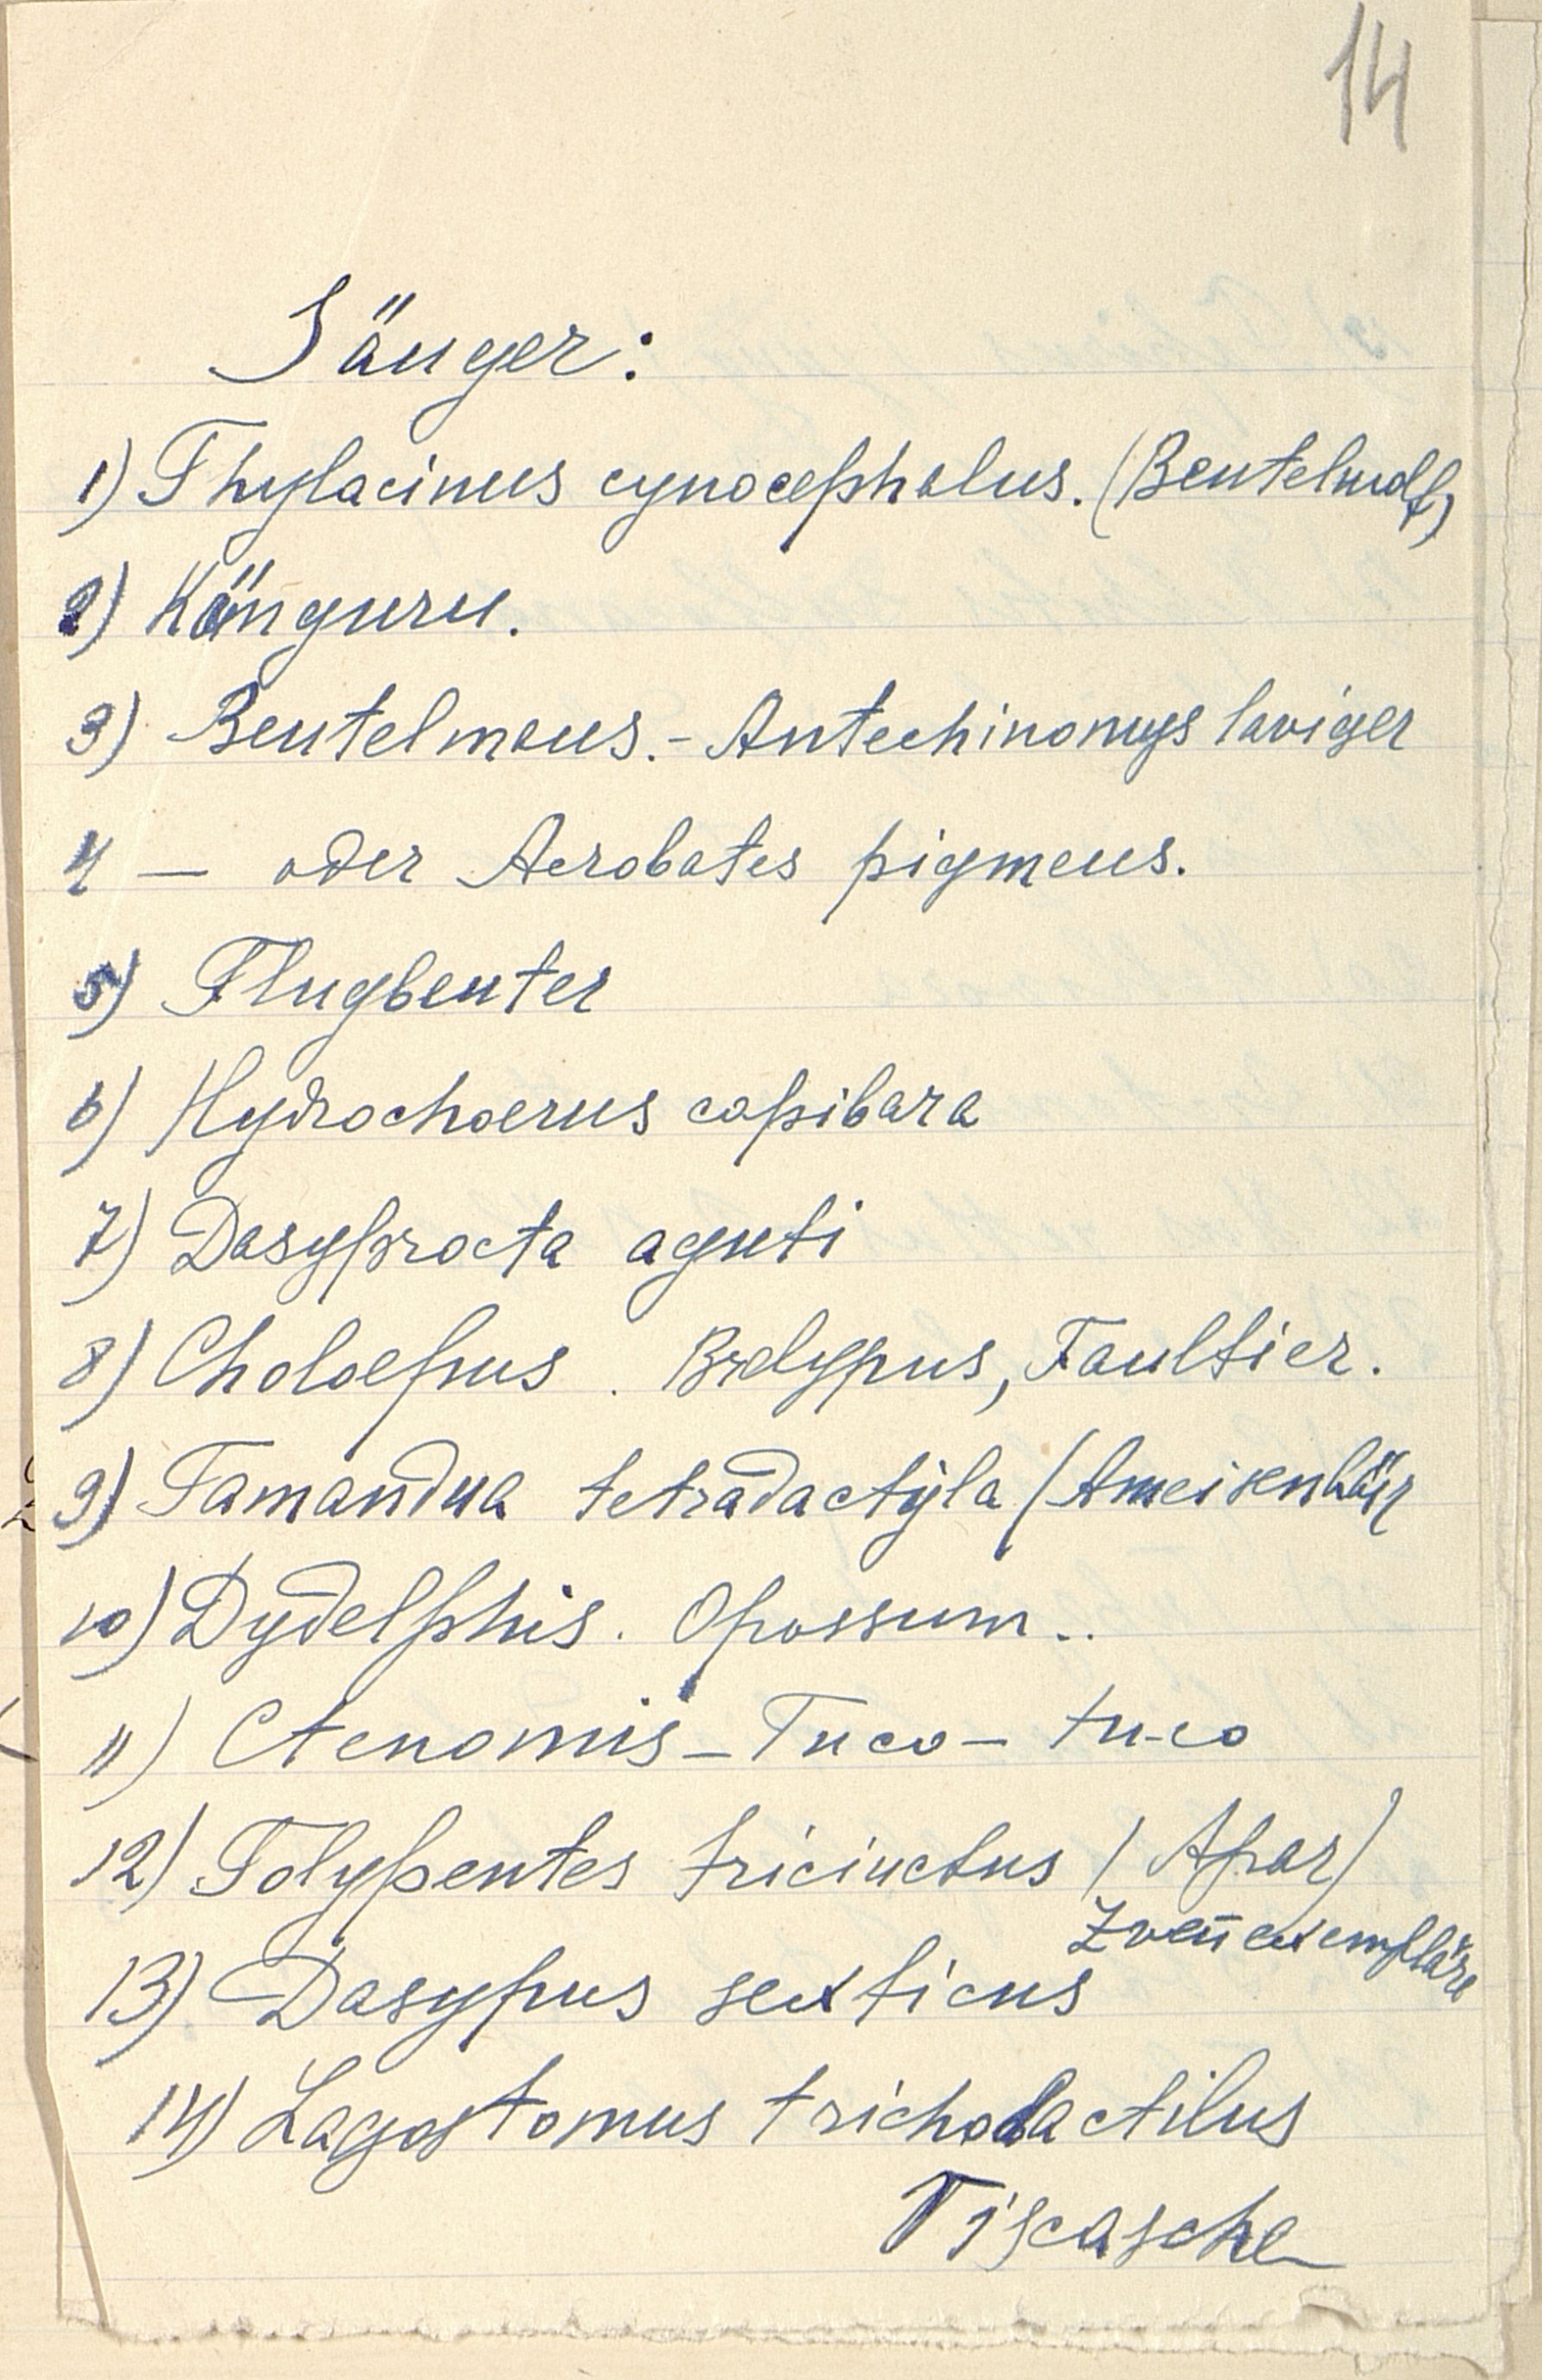 14
Säuger:
1) Thylacinus cynocephalus. (Beutelwolf)
2) Känguru.
3) Beutelmaus.- Antechinomys laviger
4 — oder Acrobates pigmeus.
5) Flugbeuter
6) Hydrochoerus capibara
7) Dasyprocta aguti
8) Choloepus. Bradypus, Faultier.
9) Tamandua tetradactyla (Ameisenbär
10) Dydelphis. Opossum..
11) Ctenomis - Tuco - tu-co
12) Tolypentes tricinctus (Apar)
Zwei exemplare
13) Dasypus sexticus
14) Lagostomus trichodactilus
Viscasche